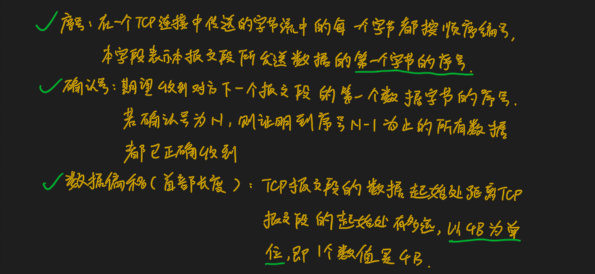 ✓序号：在一个TCP连接中传送的字节流中的每一个字节都按顺序编号，
本字段表示本报文段所发送数据的第一个字节的序号.
✓确认号：期望收到对方下一个报文段的第一个数据字节的序号.
若确认号为N，则证明到序号N-1为止的所有数据
都已正确收到
✓数据偏移(首部长度)：TCP报文段的数据起始处距离TCP
报文段的起始处有多远，以4B为单
位，即1个数值是4B.